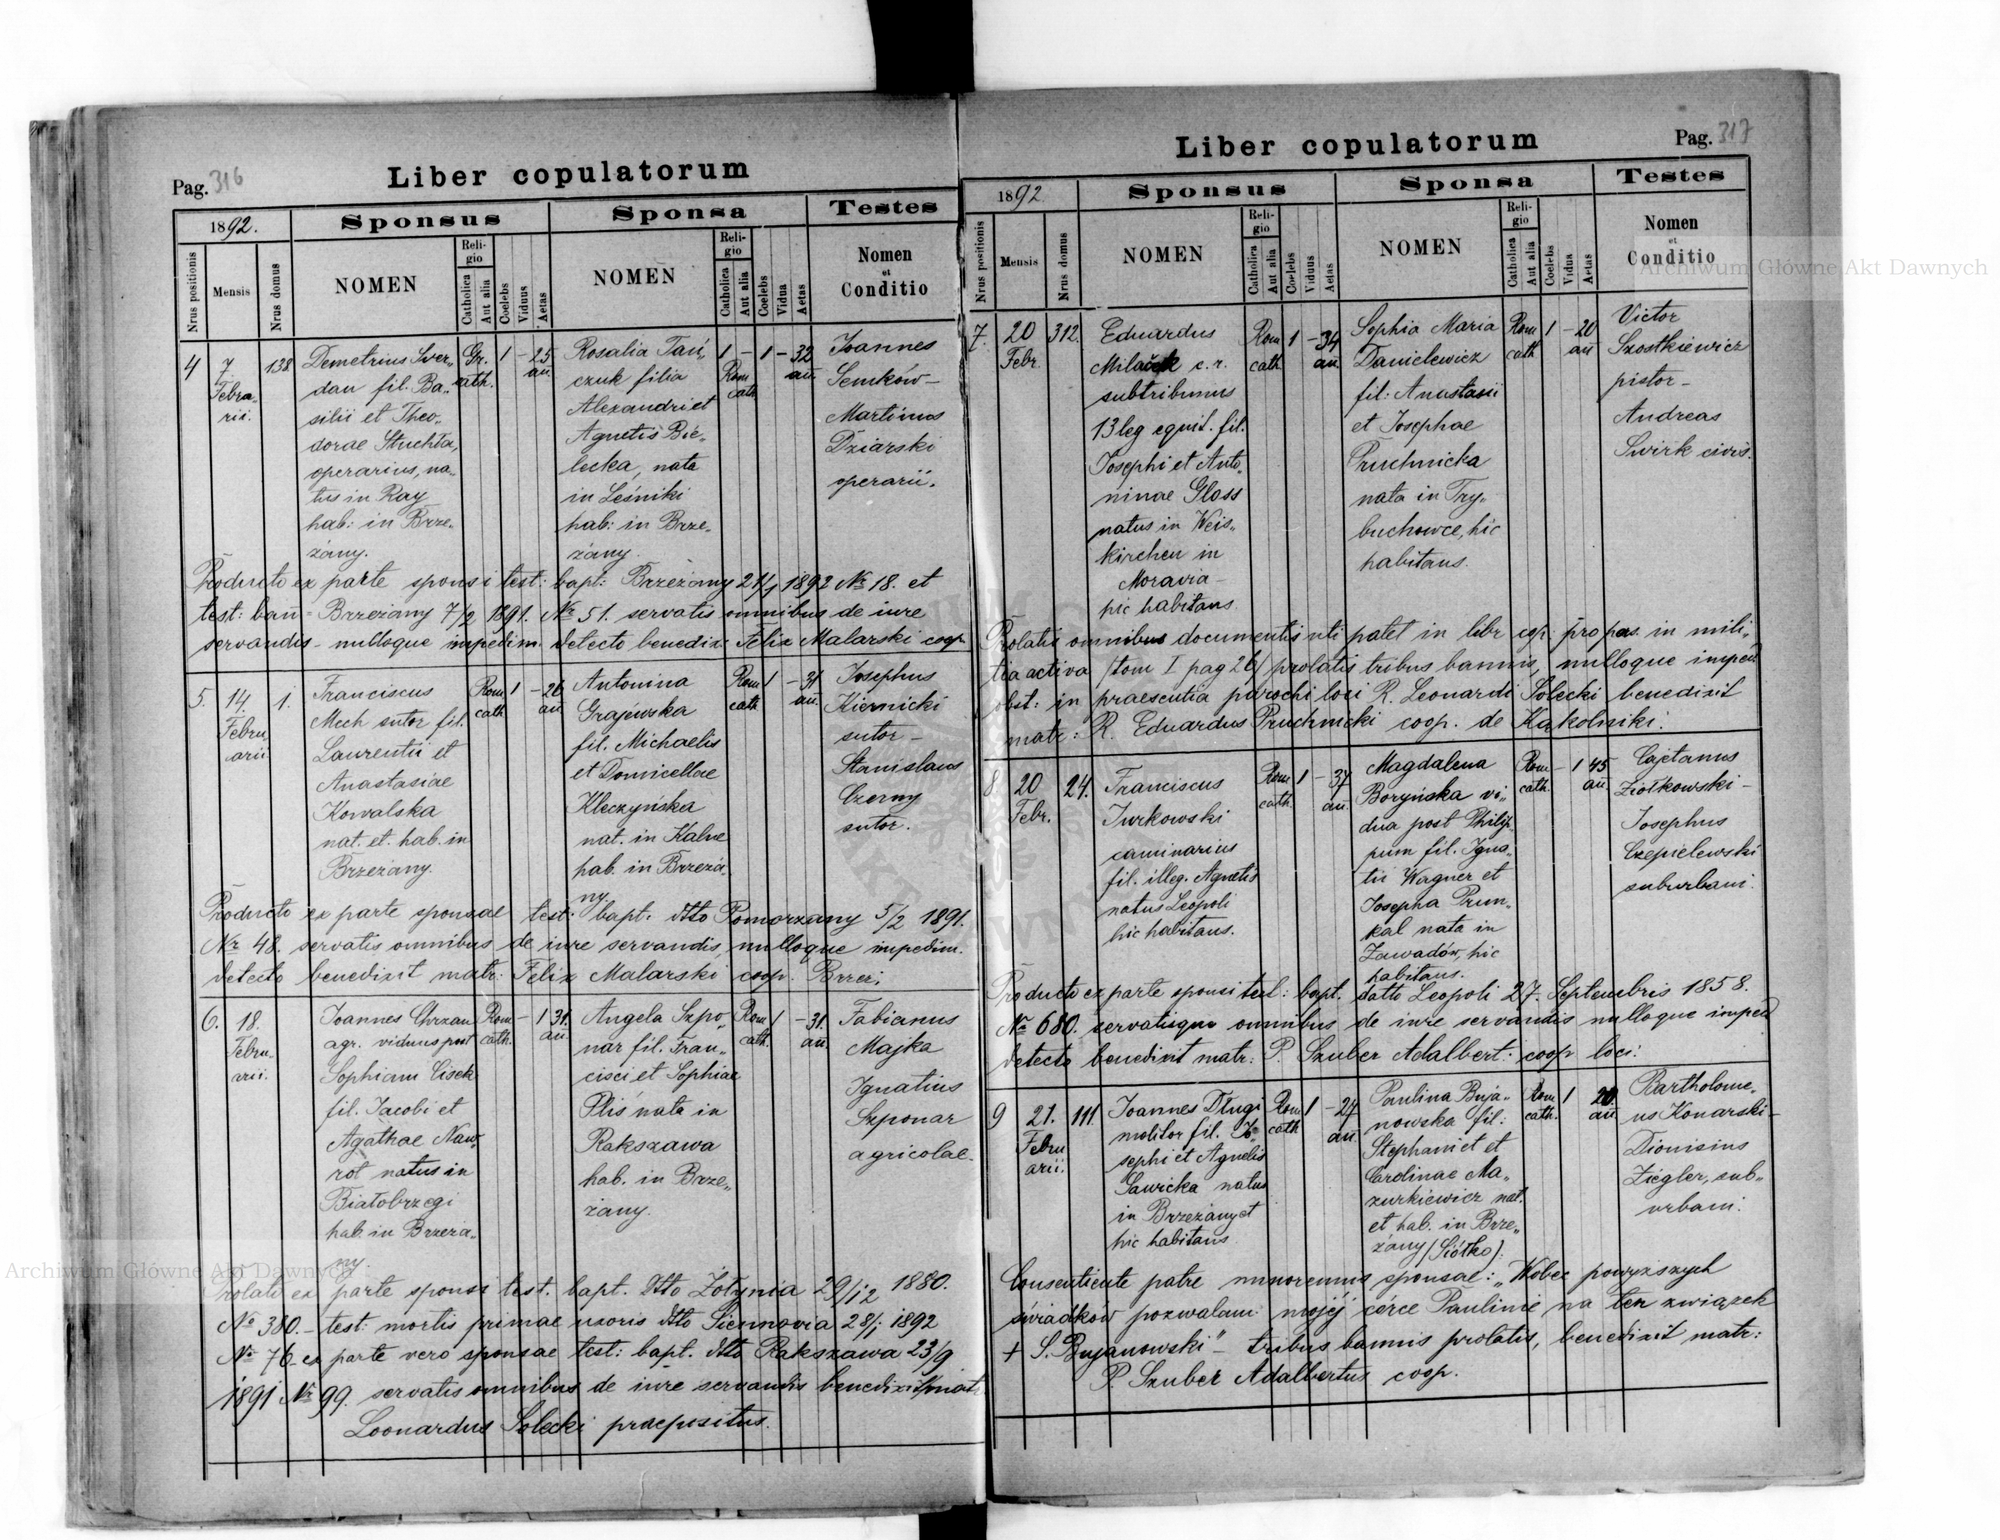 Pag. 316
Liber copulatorum
1892.
Sponsus
Sponsa
Testes
Nrus positionis
Mensis
Nrus domus
NOMEN
Religio
Catholica
Aut alia
Coelebs
Viduus
Aetas
NOMEN
Religio
Catholica
Aut alia
Coelebs
Vidua
Aetas
Nomen
et
Conditio
4 7. Februarii. 138
Demetrius Swer„
dan fil. Ba„
silii et Theo„
dorae Stuchła,
operarius, na„
tus in Ray
hab: in Brze„
żany.
Gr. cath. 1 – 25 an̄.
Rosalia Tań„
czuk filia
Alexandri et
Agnetis Bie„
lecka, nata
in Leśniki
hab: in Brze„
żany.
1 – Rom cath 1 – 32 an̄.
Ioannes
Semków –
Martinus
Dziarski
operarii.
Producto ex parte sponsi test: bapt: Brzeżany 21/1 1892 № 18. et
test: ban̄ = Brzeżany 7/2 1891. № 51. servatis omnibus de iure
servandis – nulloque impedim. detecto benedix. Felix Malarski coop
5. 14. Februarii 1.
Franciscus
Mech sutor fil.
Laurentii et
Anastasiae
Kowalska
nat. et. hab. in
Brzeżany.
Rom cath 1 – 26 an̄
Antonina
Grajewska
fil. Michaelis
et Domicellae
Kleczyńska
nat. in Kalne
hab. in Brzeża„
ny.
Rom cath. 1 – 31 an̄.
Iosephus
Kiernicki
sutor –
Stanislaus
Czerny
sutor.
Producto ex parte sponsae test: bapt. dtto Pomorzany 5/2 1891.
№ 48. servatis omnibus de iure servandis, nulloque impedim.
detecto benedixit matr: Felix Malarski coop. Brzeż.
6. 18. Februarii.
Ioannes Chrzan
agr. viduus post
Sophiam Cisek
fil. Iacobi et
Agathae Naw„
rot natus in
Białobrzegi
hab. in Brzeża„
ny.
Rom cath. – 1 31. an̄.
Angela Szpo„
nar fil. Fran„
cisci et Sophiae
Pliś nata in
Rakszawa
hab. in Brze„
żany.
Rom cath. 1 – 31. an̄.
Fabianus
Majka
Ignatius
Szponar
agricolae.
Prolati ex parte sponsi test. bapt. dtto Żołynia 29/12 1880.
№ 380. – test: mortis primae uxoris dtto Siennovia 28/1 1892
№ 76. ex parte vero sponsae test: bapt. dtto Rakszawa 23/9
1891 № 99. servatis omnibus de iure servandis benedixit matr.
Leonardus Solecki praepositus.
Pag. 317
Liber copulatorum
1892
Sponsus
Sponsa
Testes
Nrus positionis
Mensis
Nrus domus
NOMEN
Religio
Catholica
Aut alia
Coelebs
Viduus
Aetas
NOMEN
Religio
Catholica
Aut alia
Coelebs
Vidua
Aetas
Nomen
et
Conditio
7. 20 Febr. 312.
Eduardus
Milaček c. r.
subtribunus
13 leg equit. fil.
Iosephi et Anto„
ninae Gloss
natus in Weis„
kirchen in
Moravia –
hic habitans.
Rom cath. 1 – 34 an̄.
Sophia Maria
Danielewicz
fil. Anastasii
et Iosephae
Pruchnicka
nata in Try„
buchowce, hic
habitans.
Rom cath 1 – 20 an̄
Victor
Szostkiewicz
pistor –
Andreas
Swirk civis.
Prolatis omnibus documentis uti patet in libr cop: pro pers. in mili„
tia activa /tom I pag 26/ prolatis tribus bannis, nulloque imped
obst: in praesentia parochi loci R. Leonardi Solecki benedixit
matr: R. Eduardus Pruchnicki coop. de Kąkolniki.
8 20 Febr. 24.
Franciscus
Iurkowski
caminarius
fil. illeg. Agnetis
natus Leopoli
hic habitans.
Rom. cath. 1 – 37 an̄.
Magdalena
Boryńska vi„
dua post Philip„
pum fil. Igna„
tii Wagner et
Iosepha Prun„
kal nata in
Zawadów, hic
habitans.
Rom cath. – 1 45 an̄.
Cajetanus
Ziółkowski –
Iosephus
Czepielewski
suburbani.
Producto ex parte sponsi test: bapt. datto Leopoli 27. Septembris 1858.
№ 680. servatisque omnibus de iure servandis nulloque imped
detecto benedixit matr. P. Szuber Adalbert: coop loci:
9 21. Februarii. 111.
Ioannes Długi
molitor fil. Io„
sephi et Agnetis
Sawicka natus
in Brzeżany et
hic habitans
Rom cath 1 – 24 an̄.
Paulina Buja„
nowska fil:
Stephani et et
Carolinae Ma„
zurkiewicz nat.
et hab. in Brze„
żany (Siółko).
Rom cath. 1 20 an̄.
Bartholome„
us Konarski –
Dionisius
Ziegler, sub„
urbani.
Consentiente patre minorennis sponsae: „Wobec powyższych
świadków pozwalam mojéj córce Paulinie na ten związek
+ S. Bujanowski" – tribus bannis prolatis, benedixit matr:
P. Szuber Adalbertus coop.
Archiwum Główne Akt Dawnych
Archiwum Główne Akt Dawnych